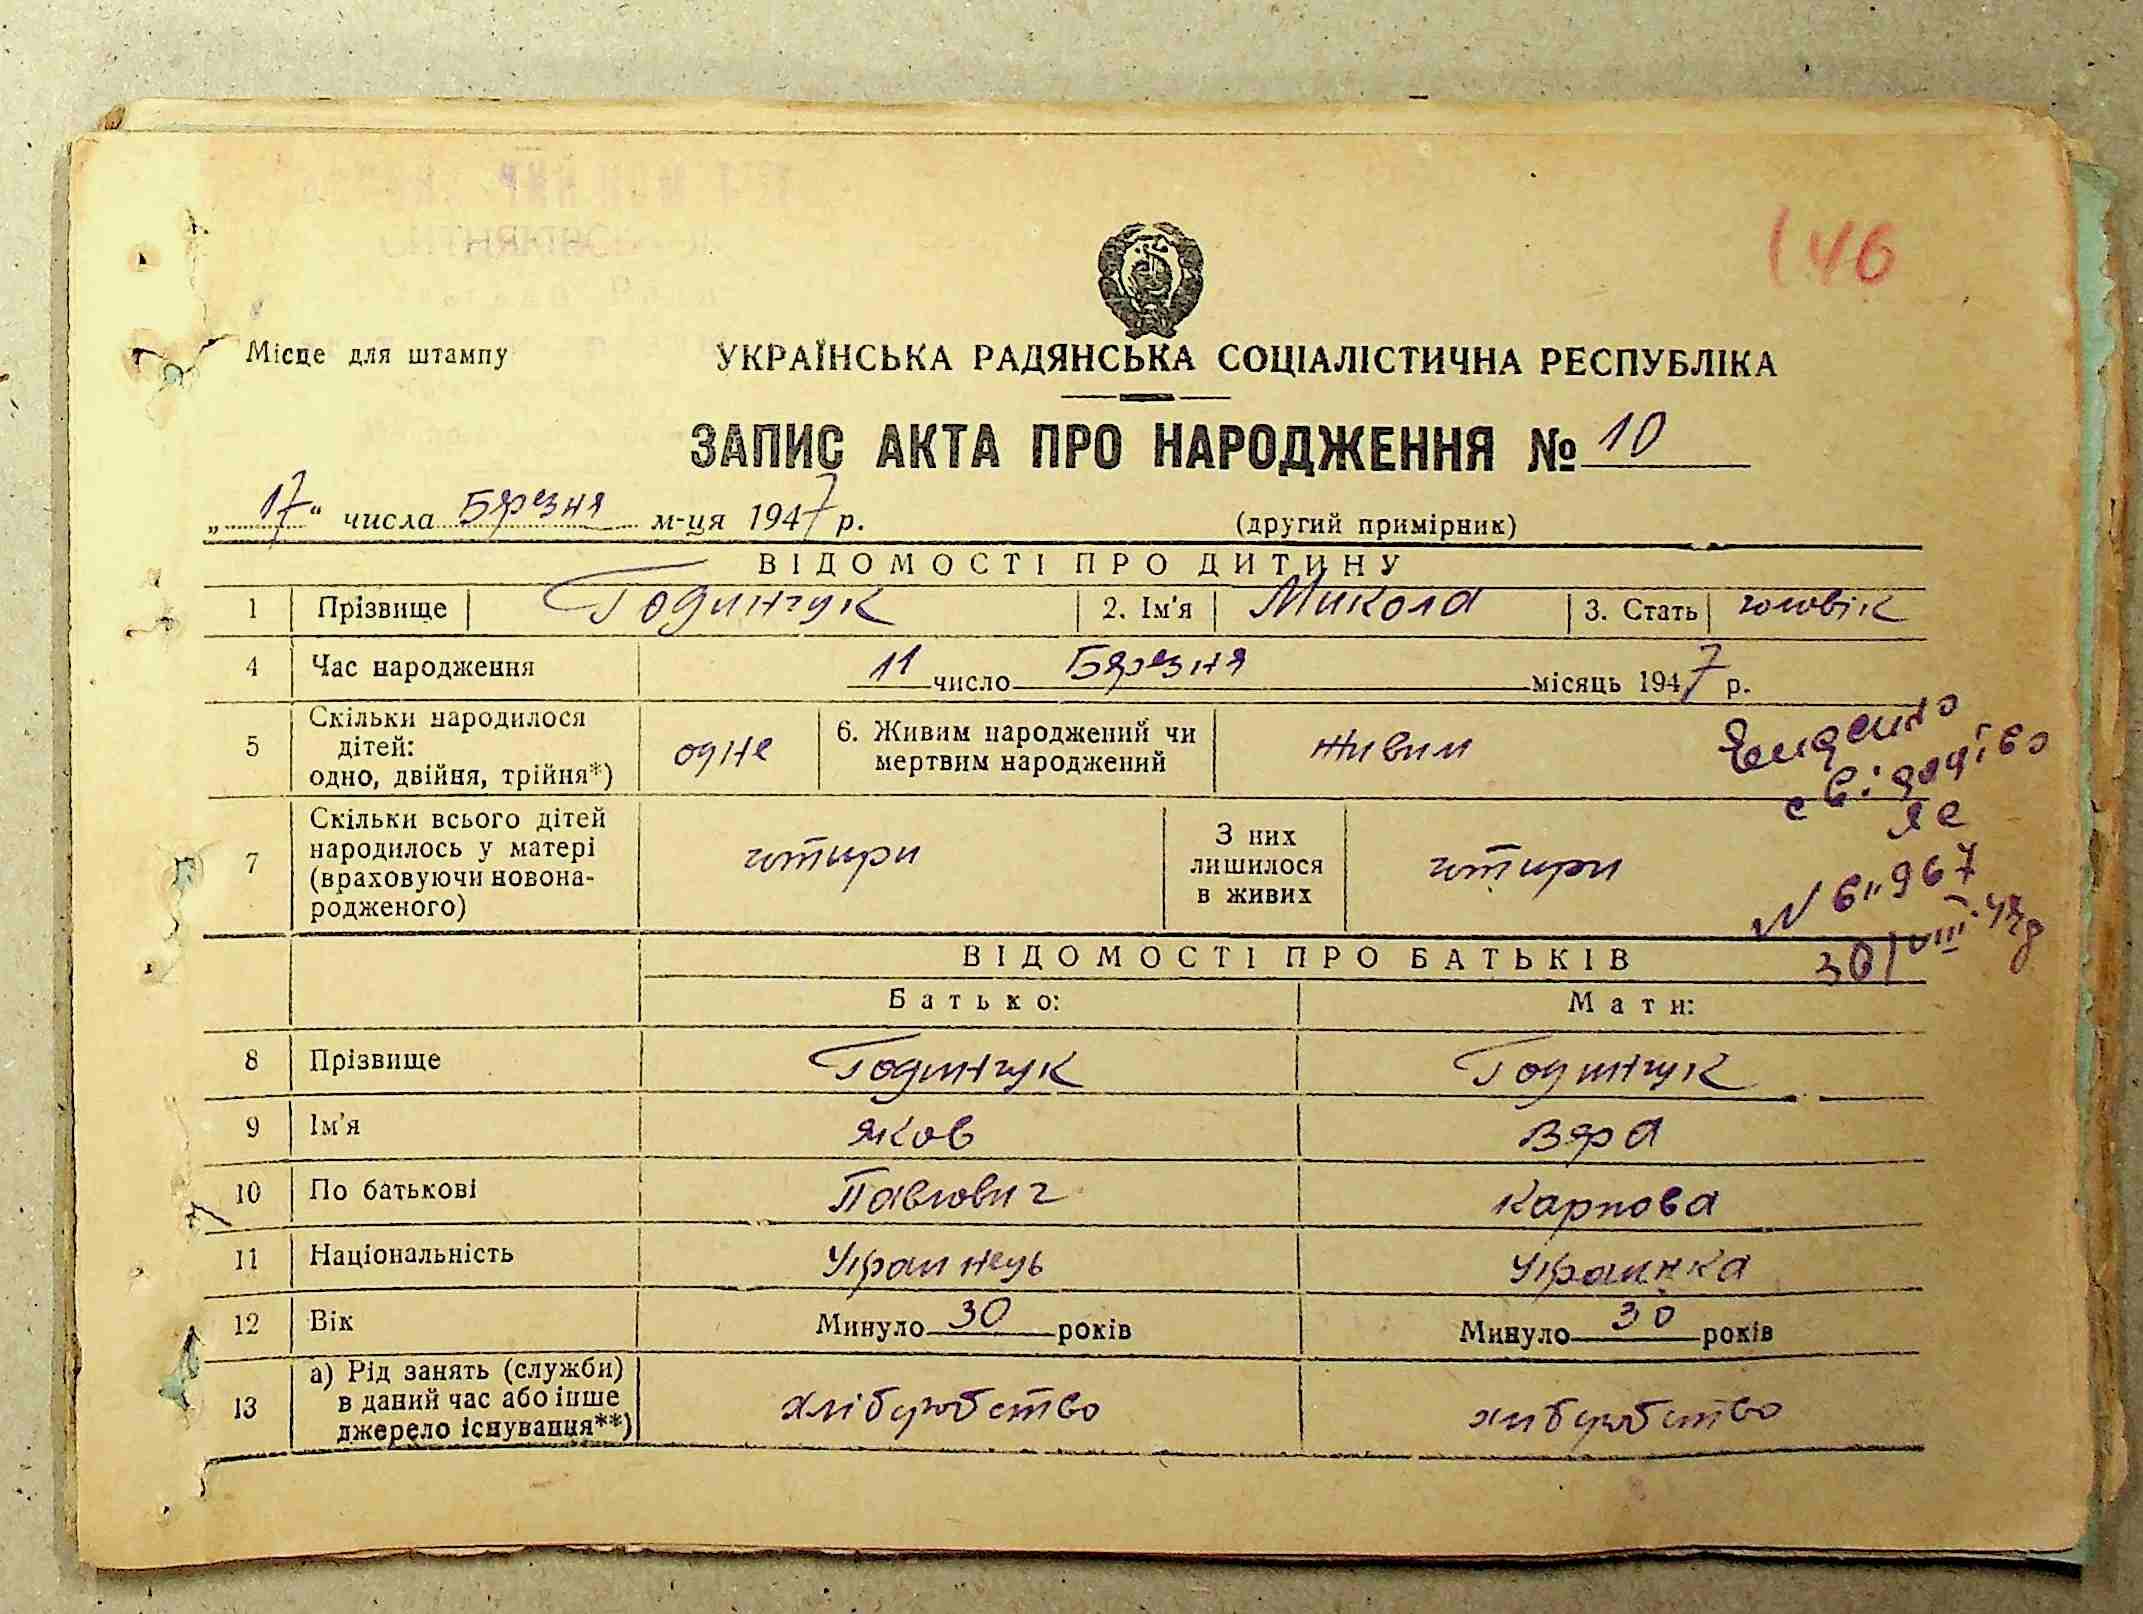 146
Місце для штампу
УКРАЇНСЬКА РАДЯНСЬКА СОЦІАЛІСТИЧНА РЕСПУБЛІКА
ЗАПИС АКТА ПРО НАРОДЖЕННЯ № 10
„17“ числа Бярезня м-ця 1947 р. (другий примірник)
ВІДОМОСТІ ПРО ДИТИНУ
1 Прізвище Годинчук 2. Ім'я Микола 3. Стать чоловік
4 Час народження 11 число Бярезня місяць 1947 р.
5 Скільки народилося дітей: одно, двійня, трійня*) одне 6. Живим народжений чи мертвим народжений живим
7 Скільки всього дітей народилось у матері (враховуючи новонародженого) чотири З них лишилося в живих чотири
ЯЕ
30/VIII-47
ВІДОМОСТІ ПРО БАТЬКІВ
Батько: Мати:
8 Прізвище Годинчук Годинчук
9 Ім'я Яков Вяра
10 По батькові Павлович Карпова
11 Національність Украинець Украинка
12 Вік Минуло 30 років Минуло 30 років
13 а) Рід занять (служби) в даний час або інше джерело існування**) хліборобство хліборобство